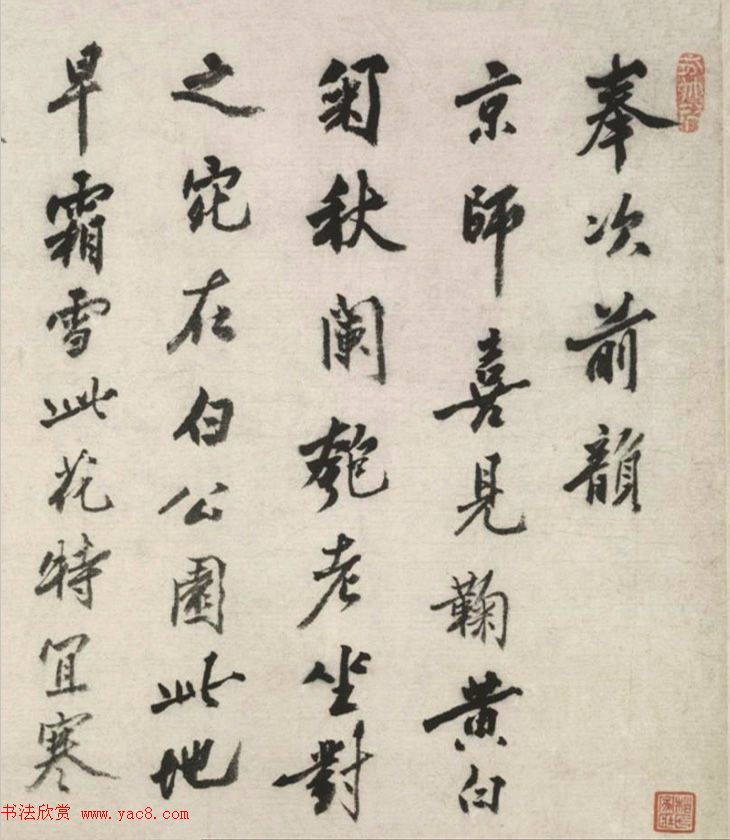 奉次前韻
京師喜見鞠黄白
匊秋闌匏老坐對
之宛在白公園此地
早霜雪此花特宜寒
书法欣赏 www.yac8.com